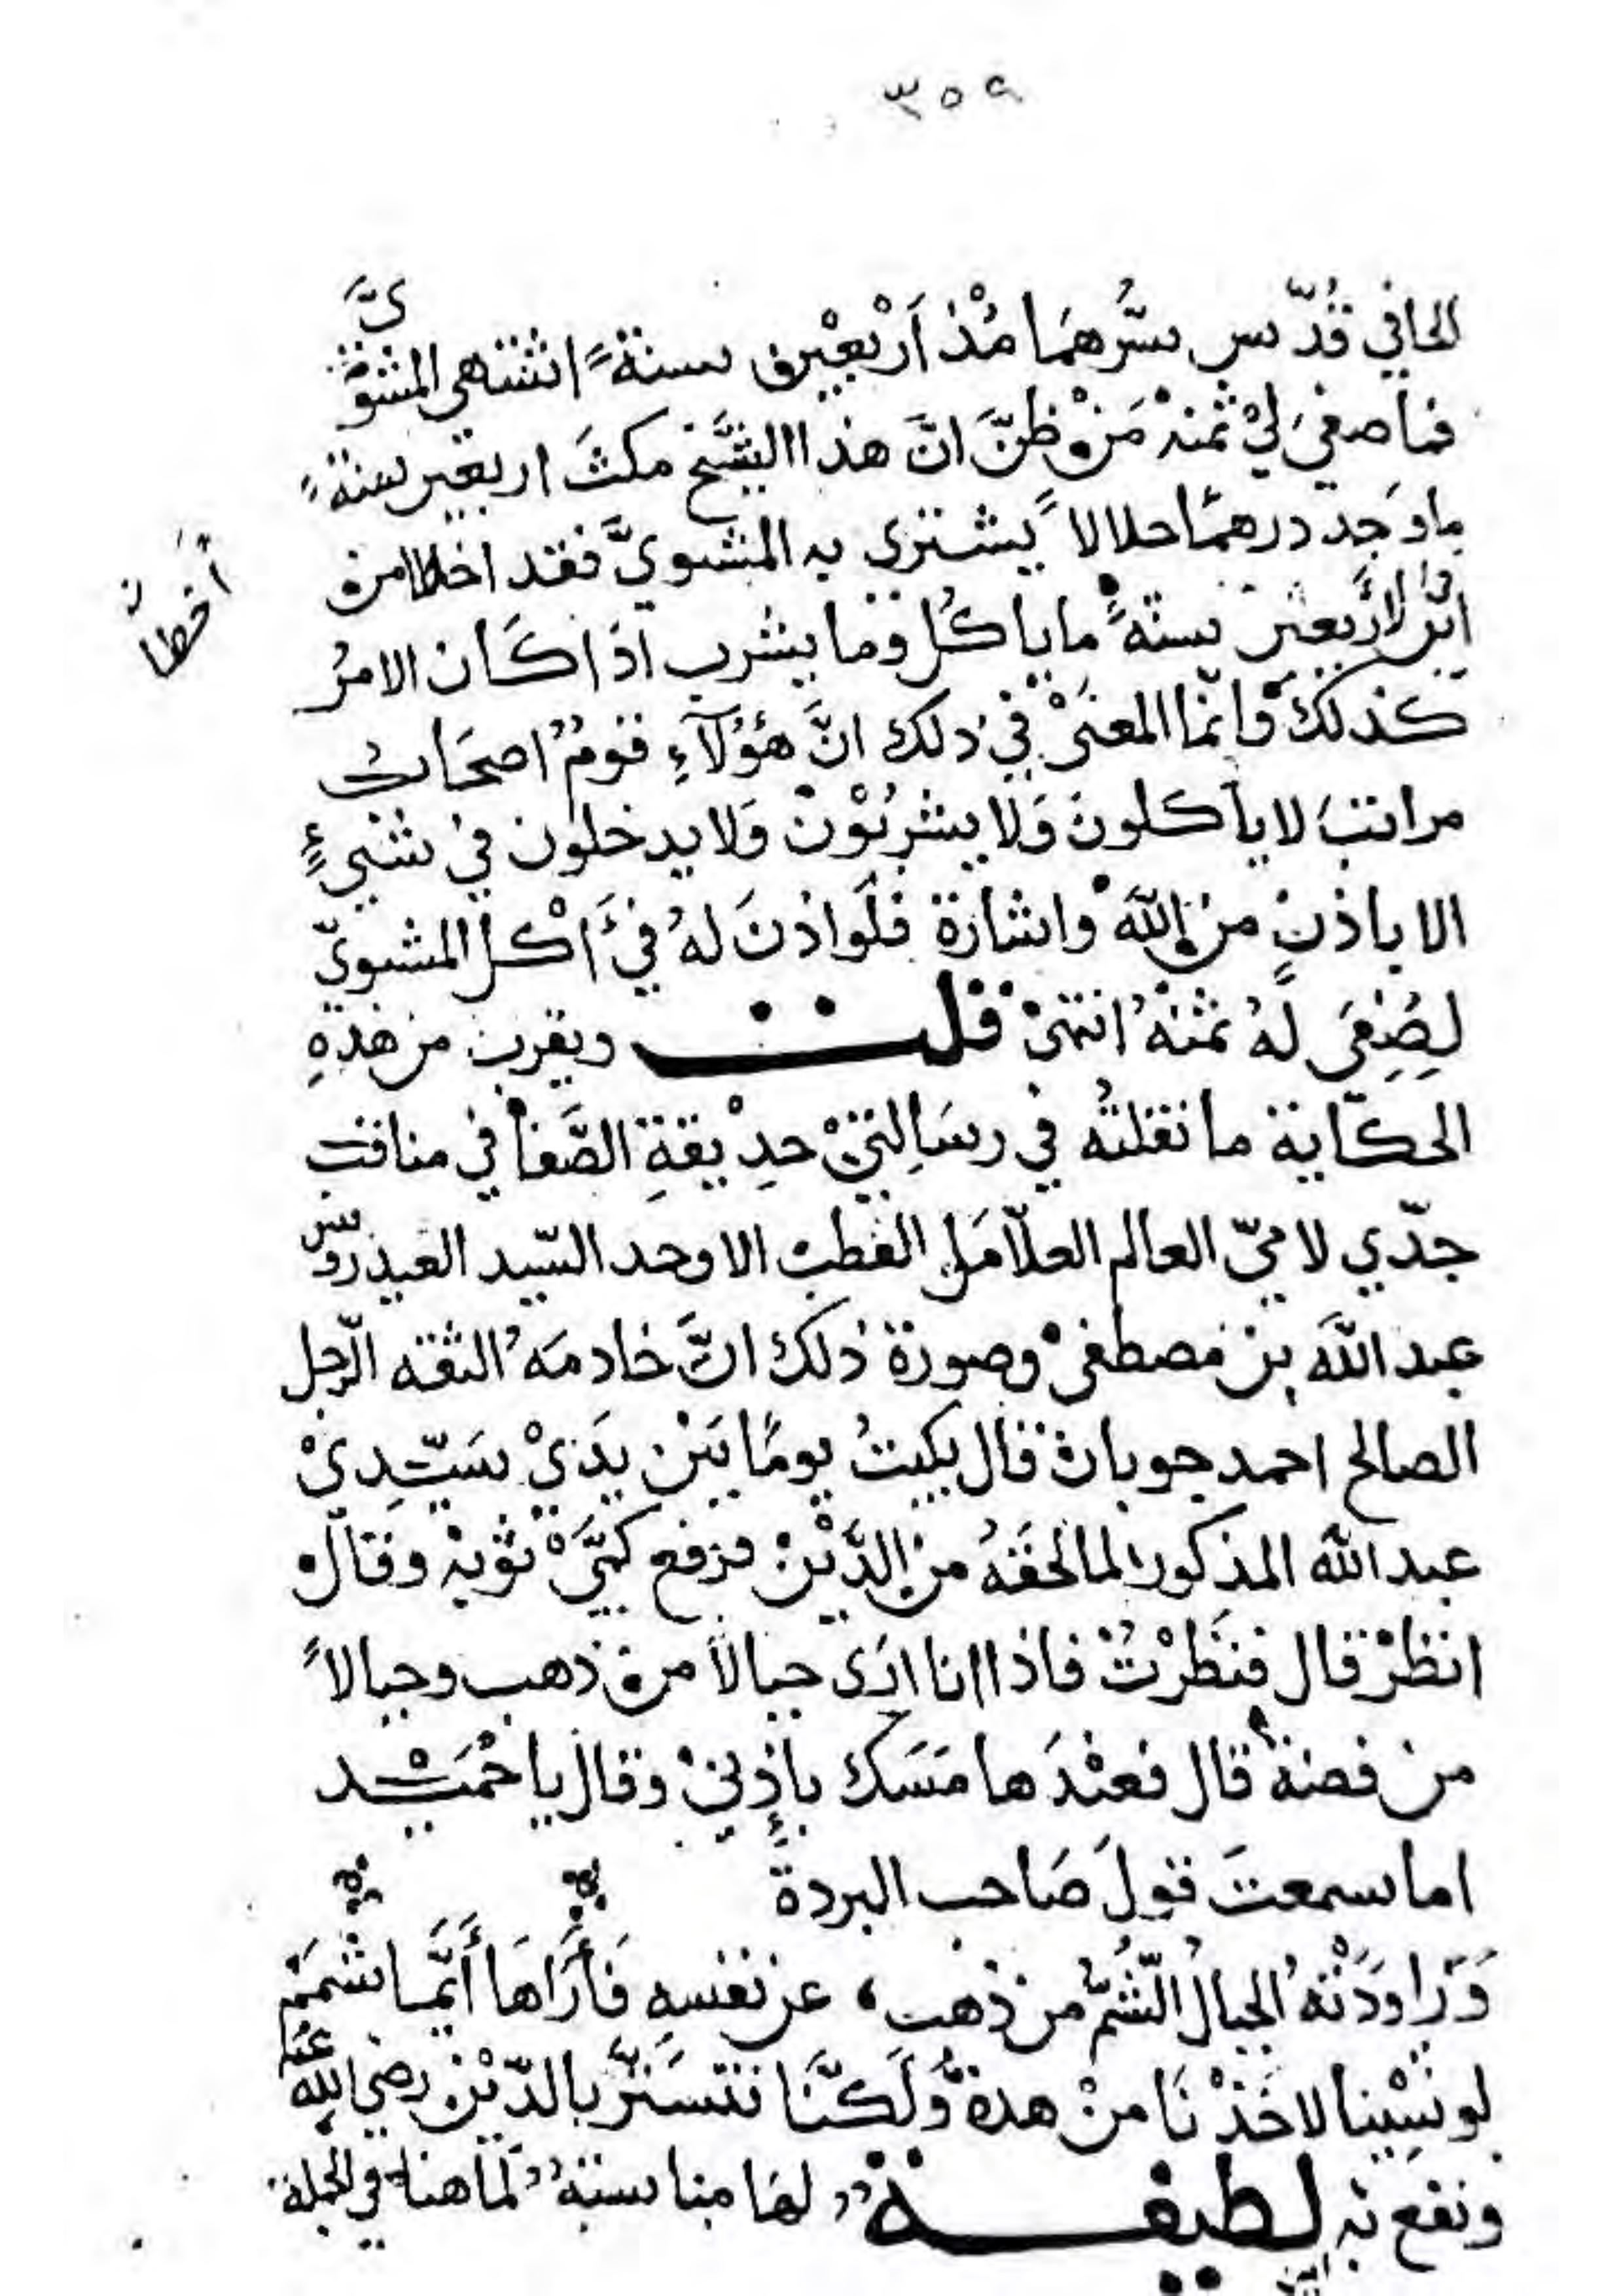 ٣٥٩
الحافي قُدّس سرُّهمَا مُنْذ اَرْبعِيْن سنةً اشتهى المشوِيَّ
فما صفى لِيْ ثمنهْ مَنْ ظنَّ انَّ هذا الشَّيخ مكثَ اربعين سنةً
ما وَجد درهمًا حلالا يشتري به المشويَّ فقد اخطا من
اين لاربعين سنةً ما ياكُل وما يشرب اذا كَان الامرُ
كذلكَ وانّما المعنَىْ في ذلك انَّ هؤلآءِ قومٌ اصحَاب
مراتبَ لا يأكلونَ وَلا يشربُوْن وَلا يدخلون في شيءٍ
الا باذنٍ من اللّٰه واشارة فلَو اذنَ لهُ في أَكْل المشويّ
لصُفِىَ لهُ ثمنهُ انتهىٰ قلت ويقرب من هذهِ
الحكاية ما نقلتُه في رسَالتيْ حدِيْقةِ الصَّفا في مناقب
جدّي لاميّ العالم العلّامَة القطب الاوحد السّيد العيدروس
عبد اللّٰه بن مصطفىْ وصورة ذلك انَّ خادمَهُ الثقه الرّجل
الصالح احمد جوبان قال بكيتُ يومًا بَيْن يدَيْ سَيّدِيْ
عبد اللّٰه المذكور لما لحقَهُ من الدَّيْن فرفع كمَّيْ ثوْبهْ وقال
انظرْ قال فنظرْتُ فاذا انا ارَى جبالاً من ذهب وجبالاً
من فضة قال فعنْدَها مَسَك باُذنيْ وقال يا حُمَيْد
اما سمعتَ قولَ صَاحب البردة
وَرَاودَتْهُ الجبالُ الشُّمُّ من ذهب، عن نفسهِ فَأَرَاهَا أَيَّما شَمَمِ
لو شِيْنا لاخَذْنَا منْ هذهْ وَلَكنَّا نتسَتَّر بالدّيْن رضي اللّٰه عنه
ونفع به لطيفة لهَا مناسبةٌ لما هنا في الجملة
أخطأ